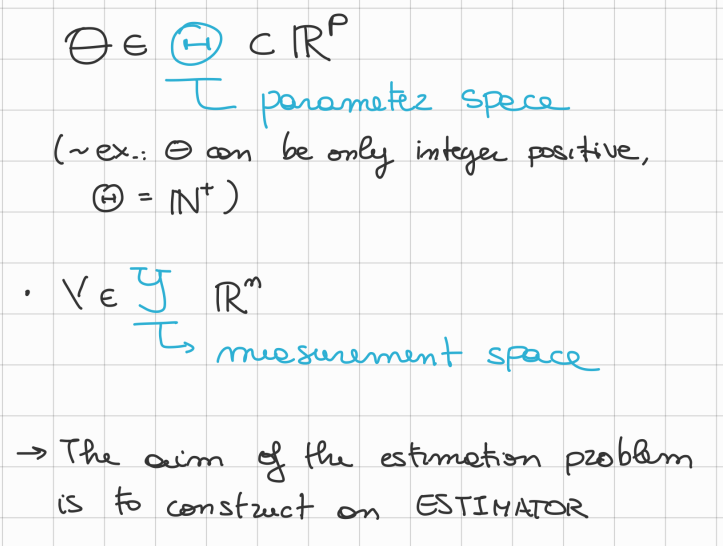 θ ∈ Θ ⊂ ℝᵖ
parameter space
(~ex.: θ can be only integer positive,
Θ = ℕ⁺)
· Y ∈ 𝒴 ℝⁿ
measurement space
→ The aim of the estimation problem
is to construct an ESTIMATOR